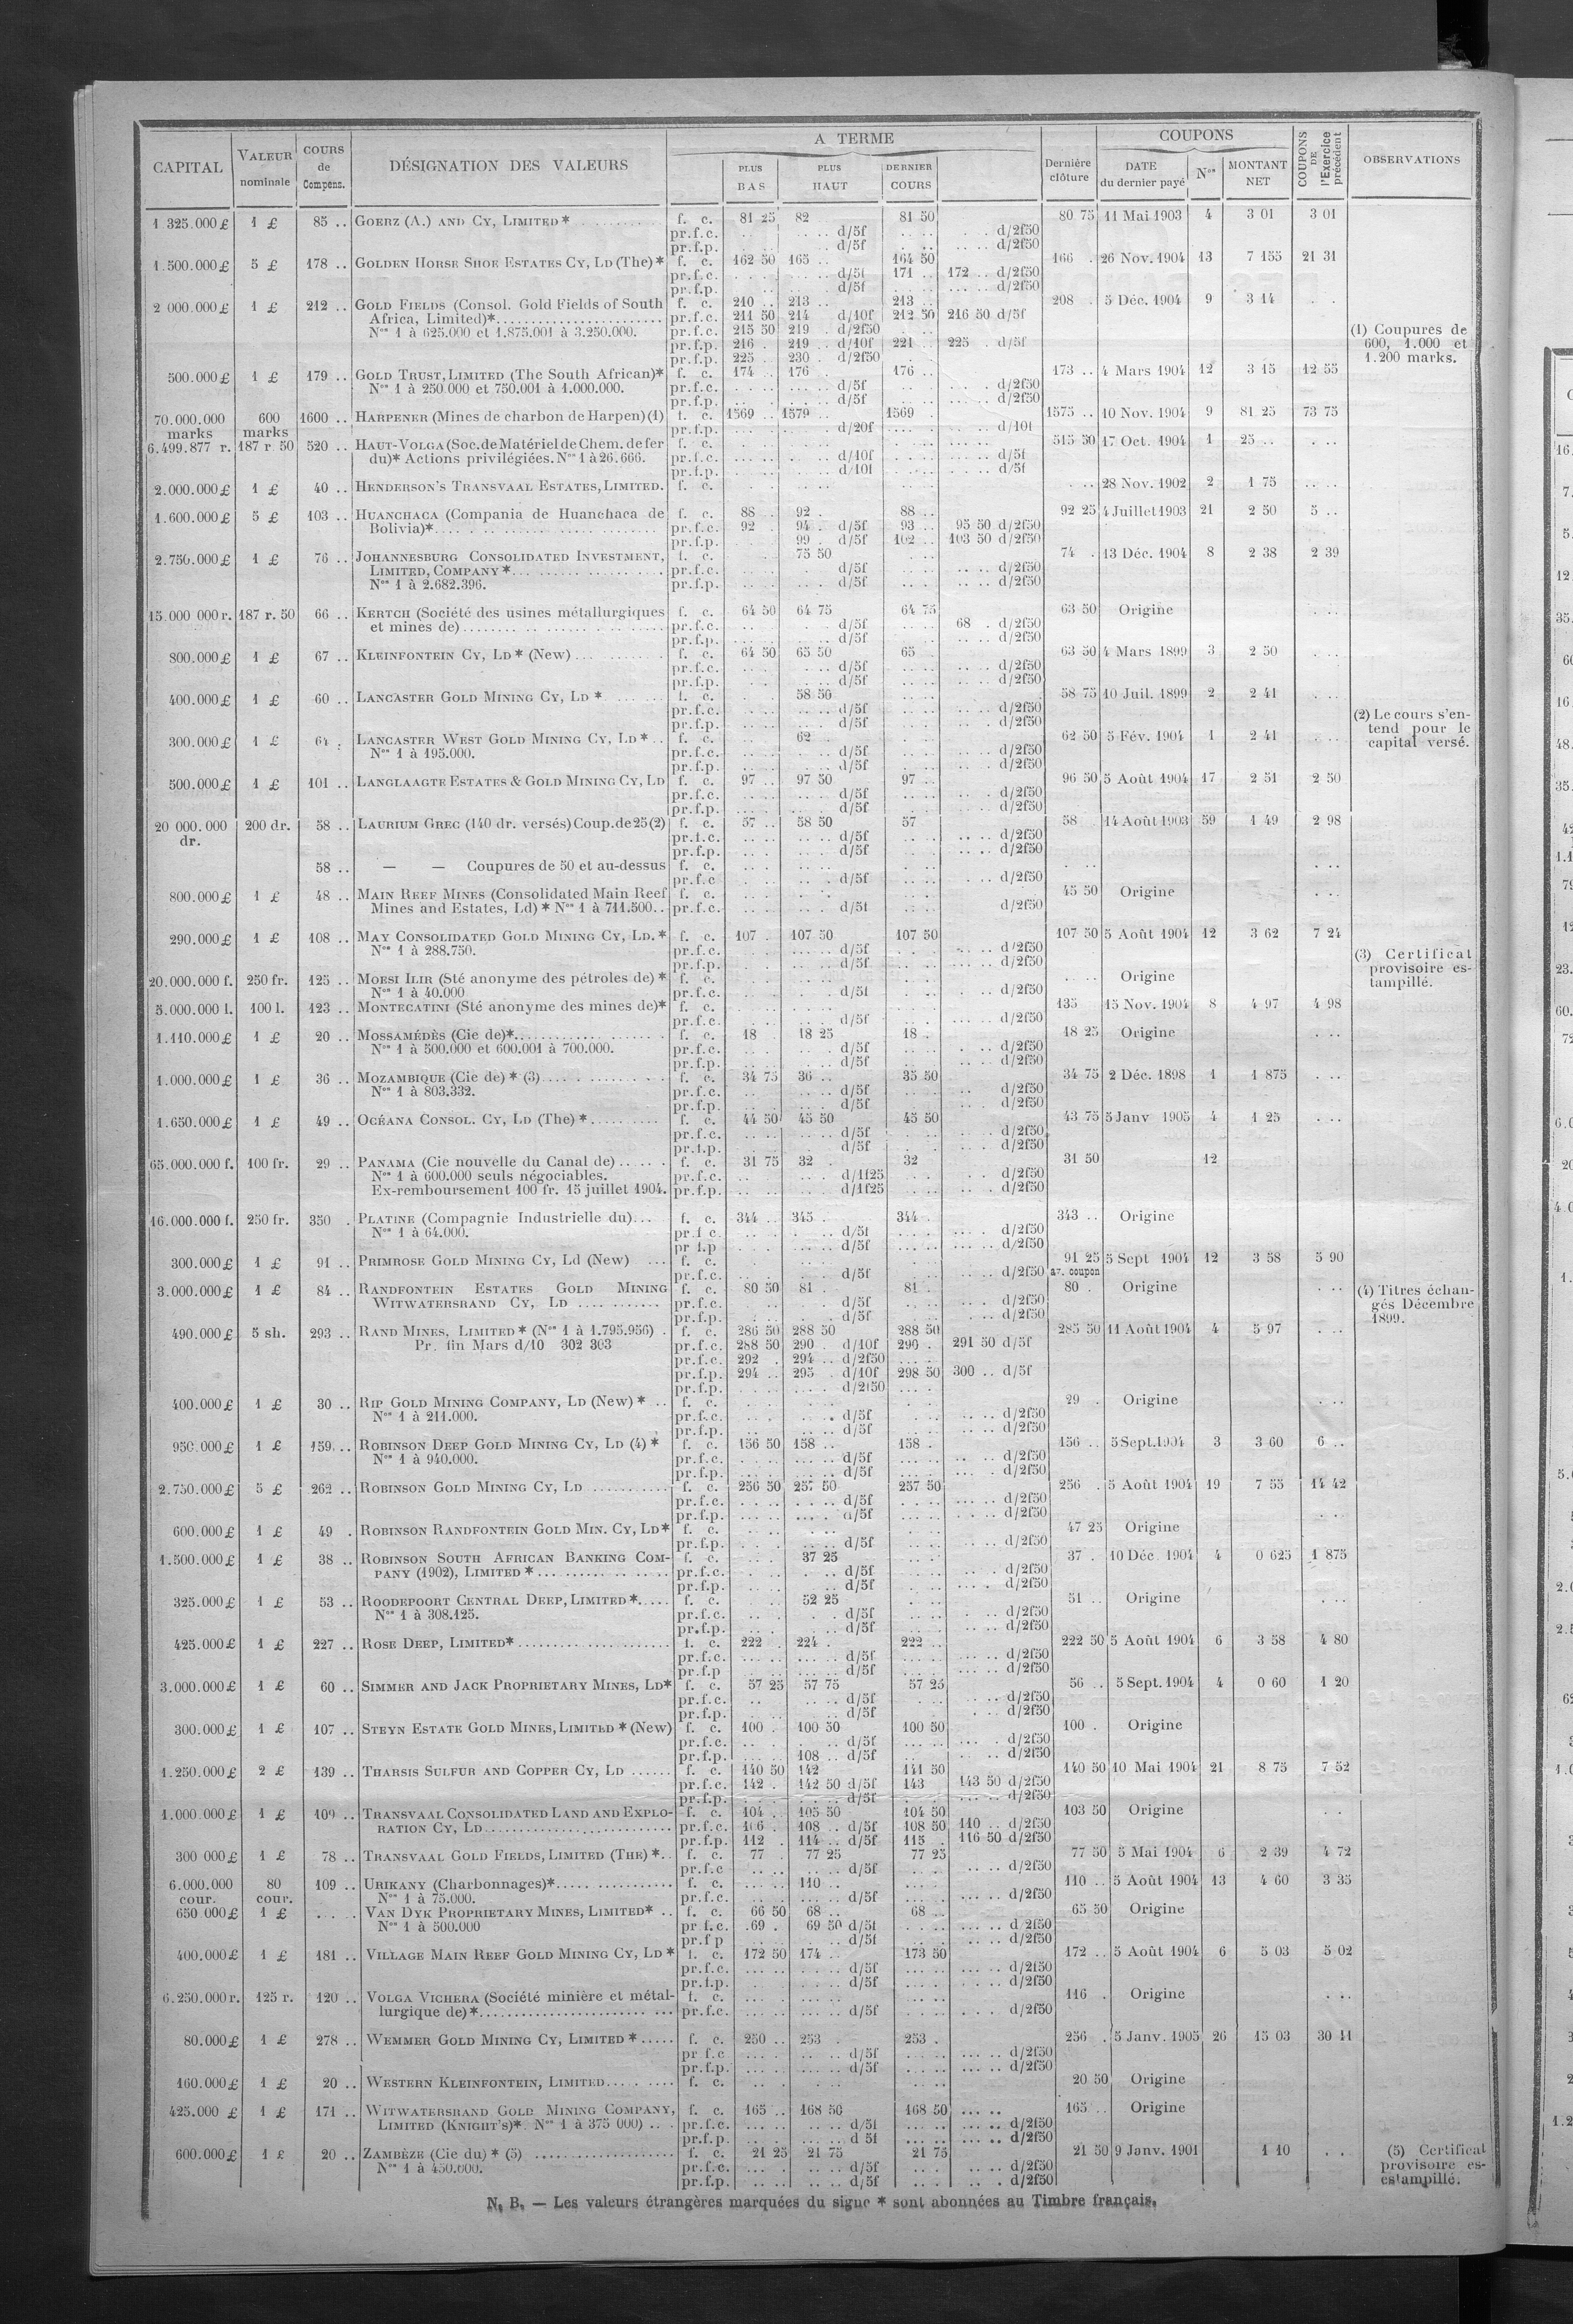 CAPITAL VALEUR nominale COURS de Compens. DÉSIGNATION DES VALEURS A TERME PLUS BAS PLUS HAUT DERNIER COURS Dernière clôture COUPONS DATE du dernier payé Nos MONTANT NET COUPONS DE l'Exercice précédent OBSERVATIONS
1 325.000 £ 1 £ 85 .. GOERZ (A.) AND CY, LIMITED * f. c. 81 25 82 81 50 80 75 11 Mai 1903 4 3 01 3 01
pr.f.c. d/5f d/2f50
pr.f.p. d/5f d/2f50
1.500.000 £ 5 £ 178 .. GOLDEN HORSE SHOE ESTATES CY, LD (The) * f. c. 162 50 165 .. 164 50 166 . 26 Nov. 1904 13 7 155 21 31
pr.f.c. d/5f 171 .. 172 .. d/2f50
pr.f.p. d/5f d/2f50
2 000.000 £ 1 £ 212 .. GOLD FIELDS (Consol. Gold Fields of South f. c. 210 .. 213 .. 213 .. 208 . 5 Déc. 1904 9 3 14
Africa, Limited)* pr.f.c. 211 50 214 d/10f 212 50 216 50 d/5f
Nos 1 à 625.000 et 1.875.001 à 3.250.000. pr.f.c. 215 50 219 . d/2f50
pr.f.p. 216 . 219 .. d/10f 221 .. 225 . d/5f
pr.f.p. 225 . 230 . d/2f50
(1) Coupures de
600, 1.000 et
1.200 marks.
500.000 £ 1 £ 179 .. GOLD TRUST, LIMITED (The South African)* f. c. 174 .. 176 . 176 .. 173 .. 4 Mars 1904 12 3 15 12 55
Nos 1 à 250 000 et 750.001 à 1.000.000. pr.f.c. d/5f d/2f50
pr.f.p. d/5f d/2f50
70.000.000 marks 600 marks 1600 .. HARPENER (Mines de charbon de Harpen) (1) f. c. 1569 .. 1579 .. 1569 . 1575 .. 10 Nov. 1904 9 81 25 73 75
pr.f.p. d/20f d/10f
6.499.877 r. 187 r 50 520 .. HAUT-VOLGA (Soc. de Matériel de Chem. de fer f. c. 515 50 17 Oct. 1904 1 25 ..
du)* Actions privilégiées. Nos 1 à 26.666. pr.f.c. d/10f d/5f
pr.f.p. d/10f d/5f
2.000.000 £ 1 £ 40 .. HENDERSON'S TRANSVAAL ESTATES, LIMITED. f. c. 28 Nov. 1902 2 1 75
1.600.000 £ 5 £ 103 .. HUANCHACA (Compania de Huanchaca de f. c. 88 92 . 88 .. 92 25 4 Juillet 1903 21 2 50 5 ..
Bolivia)* pr.f.c. 92 . 94 . d/5f 93 .. 95 50 d/2f50
pr.f.p. 99 . d/5f 102 .. 103 50 d/2f50
2.750.000 £ 1 £ 76 .. JOHANNESBURG CONSOLIDATED INVESTMENT, f. c. 75 50 74 . 13 Déc. 1904 8 2 38 2 39
LIMITED, COMPANY * pr.f.c. d/5f d/2f50
Nos 1 à 2.682.396. pr.f.p. d/5f d/2f50
15.000 000 r. 187 r. 50 66 .. KERTCH (Société des usines métallurgiques f. c. 64 50 64 75 64 75 63 50 Origine
et mines de) pr.f.c. d/5f 68 . d/2f50
pr.f.p. d/5f d/2f50
800.000 £ 1 £ 67 .. KLEINFONTEIN CY, LD * (New) f. c. 64 50 65 50 65 . 63 50 4 Mars 1899 3 2 50
pr.f.c. d/5f d/2f50
pr.f.p. d/5f d/2f50
400.000 £ 1 £ 60 .. LANCASTER GOLD MINING CY, LD * f. c. 58 50 58 75 10 Juil. 1899 2 2 41
pr.f.c. d/5f d/2f50
pr.f.p. d/5f d/2f50
(2) Le cours s'en-
tend pour le
capital versé.
300.000 £ 1 £ 64 . LANCASTER WEST GOLD MINING CY, LD * f. c. 62 . 62 50 5 Fév. 1904 1 2 41
Nos 1 à 195.000. pr.f.c. d/5f d/2f50
pr.f.p. d/5f d/2f50
500.000 £ 1 £ 101 .. LANGLAAGTE ESTATES & GOLD MINING CY, LD f. c. 97 .. 97 50 97 .. 96 50 5 Août 1904 17 2 51 2 50
pr.f.c. d/5f d/2f50
pr.f.p. d/5f d/2f50
20 000.000 dr. 200 dr. 58 .. LAURIUM GREC (140 dr. versés) Coup. de 25 (2) f. c. 57 .. 58 50 57 58 . 14 Août 1903 59 1 49 2 98
pr.f.c. d/5f d/2f50
pr.f.p. d/5f d/2f50
58 .. — — Coupures de 50 et au-dessus f. c.
pr.f.c d/5f d/2f50
800.000 £ 1 £ 48 .. MAIN REEF MINES (Consolidated Main Reef f. c. 45 50 Origine
Mines and Estates, Ld) * Nos 1 à 711.500 pr.f.c. d/5f d/2f50
290.000 £ 1 £ 108 .. MAY CONSOLIDATED GOLD MINING CY, LD. * f. c. 107 . 107 50 107 50 107 50 5 Août 1904 12 3 62 7 24
Nos 1 à 288.750. pr.f.c. d/5f d/2f50
pr.f.p. d/5f d/2f50
(3) Certificat
provisoire es-
tampillé.
20.000.000 f. 250 fr. 125 .. MOESI ILIR (Sté anonyme des pétroles de) * f. c. Origine
Nos 1 à 40.000 pr.f.c. d/5f d/2f50
5.000.000 l. 100 l. 123 .. MONTECATINI (Sté anonyme des mines de)* f. c. 135 15 Nov. 1904 8 4 97 4 98
pr.f.c. d/5f d/2f50
1.110.000 £ 1 £ 20 .. MOSSAMÉDÈS (Cie de)* f. c. 18 18 25 18 .. 18 25 Origine
Nos 1 à 500.000 et 600.001 à 700.000. pr.f.c. d/5f d/2f50
pr.f.p. d/5f d/2f50
1.000.000 £ 1 £ 36 .. MOZAMBIQUE (Cie de) * (3) f. c. 34 75 36 .. 35 50 34 75 2 Déc. 1898 1 1 875
Nos 1 à 803.332. pr.f.c. d/5f d/2f50
pr.f.p. d/5f d/2f50
1.650.000 £ 1 £ 49 .. OCÉANA CONSOL. CY, LD (The) * f. c. 44 50 45 50 45 50 43 75 5 Janv 1905 4 1 25
pr.f.c. d/5f d/2f50
pr.f.p. d/5f d/2f50
65.000.000 f. 100 fr. 29 .. PANAMA (Cie nouvelle du Canal de) f. c. 31 75 32 . 32 31 50 12
Nos 1 à 600.000 seuls négociables. pr.f.c. d/1f25 d/2f50
Ex-remboursement 100 fr. 15 juillet 1904. pr.f.p. d/1f25 d/2f50
16.000.000 f. 250 fr. 350 . PLATINE (Compagnie Industrielle du) f. c. 344 .. 345 . 344 . 343 .. Origine
Nos 1 à 64.000. pr.f c. d/5f d/2f50
pr f.p d/5f d/2f50
300.000 £ 1 £ 91 .. PRIMROSE GOLD MINING CY, Ld (New) f. c. 91 25 5 Sept 1904 12 3 58 5 90
pr.f.c. d/5f d/2f50 av. coupon
3.000.000 £ 1 £ 84 .. RANDFONTEIN ESTATES GOLD MINING f. c. 80 50 81 . 81 . 80 . Origine
WITWATERSRAND CY, LD pr.f.c. d/5f d/2f50
pr.f.p. d/5f d/2f50
(4) Titres échan-
gés Décembre
1899.
490.000 £ 5 sh. 293 .. RAND MINES, LIMITED * (Nos 1 à 1.795.956) f. c. 286 50 288 50 288 50 285 50 11 Août 1904 4 5 97
Pr. fin Mars d/10 302 303 pr.f.c. 288 50 290 . d/10f 290 . 291 50 d/5f
pr.f.c. 292 . 294 .. d/2f50
pr.f.p. 294 .. 295 . d/10f 298 50 300 .. d/5f
pr.f.p. d/2f50
400.000 £ 1 £ 30 .. RIP GOLD MINING COMPANY, LD (New) * f. c. 29 . Origine
Nos 1 à 211.000. pr.f.c. d/5f d/2f50
pr.f.p. d/5f d/2f50
950.000 £ 1 £ 159 .. ROBINSON DEEP GOLD MINING CY, LD (4) * f. c. 156 50 158 .. 158 . 156 .. 5 Sept. 1904 3 3 60 6 ..
Nos 1 à 940.000. pr.f.c. d/5f d/2f50
pr.f.p. d/5f d/2f50
2.750.000 £ 5 £ 262 .. ROBINSON GOLD MINING CY, LD f. c. 256 50 257 50 257 50 256 . 5 Août 1904 19 7 55 14 42
pr.f.c. d/5f d/2f50
pr.f.p. d/5f d/2f50
600.000 £ 1 £ 49 . ROBINSON RANDFONTEIN GOLD MIN. CY, LD* f. c. 47 25 Origine
pr.f.p. d/5f d/2f50
1.500.000 £ 1 £ 38 .. ROBINSON SOUTH AFRICAN BANKING COM- f. c. 37 25 37 . 10 Déc. 1904 4 0 625 1 875
PANY (1902), LIMITED * pr.f.c. d/5f d/2f50
pr.f.p. d/5f d/2f50
325.000 £ 1 £ 53 .. ROODEPOORT CENTRAL DEEP, LIMITED * f. c. 52 25 51 .. Origine
Nos 1 à 308.125. pr.f.c. d/5f d/2f50
pr.f.p. d/5f d/2f50
425.000 £ 1 £ 227 .. ROSE DEEP, LIMITED* f. c. 222 . 224 . 222 .. 222 50 5 Août 1904 6 3 58 4 80
pr.f.c. d/5f d/2f50
pr.f.p d/5f d/2f50
3.000.000 £ 1 £ 60 .. SIMMER AND JACK PROPRIETARY MINES, LD* f. c. 57 25 57 75 57 25 56 .. 5 Sept. 1904 4 0 60 1 20
pr.f.c. d/5f d/2f50
pr.f.p. d/5f d/2f50
300.000 £ 1 £ 107 .. STEYN ESTATE GOLD MINES, LIMITED * (New) f. c. 100 . 100 50 100 50 100 . Origine
pr.f.c. d/5f d/2f50
pr.f.p. 108 .. d/5f d/2f50
1.250.000 £ 2 £ 139 .. THARSIS SULFUR AND COPPER CY, LD f. c. 140 50 142 141 50 140 50 10 Mai 1904 21 8 75 7 52
pr.f.c. 142 . 142 50 d/5f 143 143 50 d/2f50
pr.f.p. d/5f d/2f50
1.000.000 £ 1 £ 109 .. TRANSVAAL CONSOLIDATED LAND AND EXPLO- f. c. 104 . 105 50 104 50 103 50 Origine
RATION CY, LD pr.f.c. 106 . 108 .. d/5f 108 50 110 .. d/2f50
pr.f.p. 112 . 114 .. d/5f 115 . 116 50 d/2f50
300 000 £ 1 £ 78 .. TRANSVAAL GOLD FIELDS, LIMITED (THE) * f. c. 77 . 77 25 77 25 77 50 5 Mai 1904 6 2 39 4 72
pr.f.c d/5f d/2f50
6.000.000 cour. 80 cour. 109 .. URIKANY (Charbonnages)* f. c. 110 .. 110 .. 5 Août 1904 13 4 60 3 35
Nos 1 à 75.000. pr.f.c. d/5f d/2f50
650 000 £ 1 £ VAN DYK PROPRIETARY MINES, LIMITED* f. c. 66 50 68 .. 68 .. 65 50 Origine
Nos 1 à 500.000 pr f.c. 69 . 69 50 d/5f d/2f50
pr.f p d/5f d/2f50
400.000 £ 1 £ 181 .. VILLAGE MAIN REEF GOLD MINING CY, LD * f. c. 172 50 174 .. 173 50 172 .. 5 Août 1904 6 5 03 5 02
pr.f.c. d/5f d/2f50
pr.f.p. d/5f d/2f50
6.250.000 r. 125 r. 120 .. VOLGA VICHERA (Société minière et métal- f. c. 116 . Origine
lurgique de) * pr.f.c. d/5f d/2f50
80.000 £ 1 £ 278 .. WEMMER GOLD MINING CY, LIMITED * f. c. 250 .. 253 . 253 . 256 . 5 Janv. 1905 26 15 03 30 11
pr f.c d/5f d/2f50
pr.f.p. d/5f d/2f50
160.000 £ 1 £ 20 .. WESTERN KLEINFONTEIN, LIMITED f. c. 20 50 Origine
425.000 £ 1 £ 171 .. WITWATERSRAND GOLD MINING COMPANY, f. c. 165 .. 168 50 168 50 165 .. Origine
LIMITED (KNIGHT'S)* Nos 1 à 375 000) pr.f.c. d/5f d/2f50
pr.f.p. d 5f d/2f50
600.000 £ 1 £ 20 .. ZAMBÈZE (Cie du) * (5) f. c. 21 25 21 75 21 75 21 50 9 Janv. 1901 1 10
Nos 1 à 450.000. pr.f.c. d/5f d/2f50
pr.f.p. d/5f d/2f50
(5) Certificat
provisoire es-
estampillé.
N. B. — Les valeurs étrangères marquées du signe * sont abonnées au Timbre français.